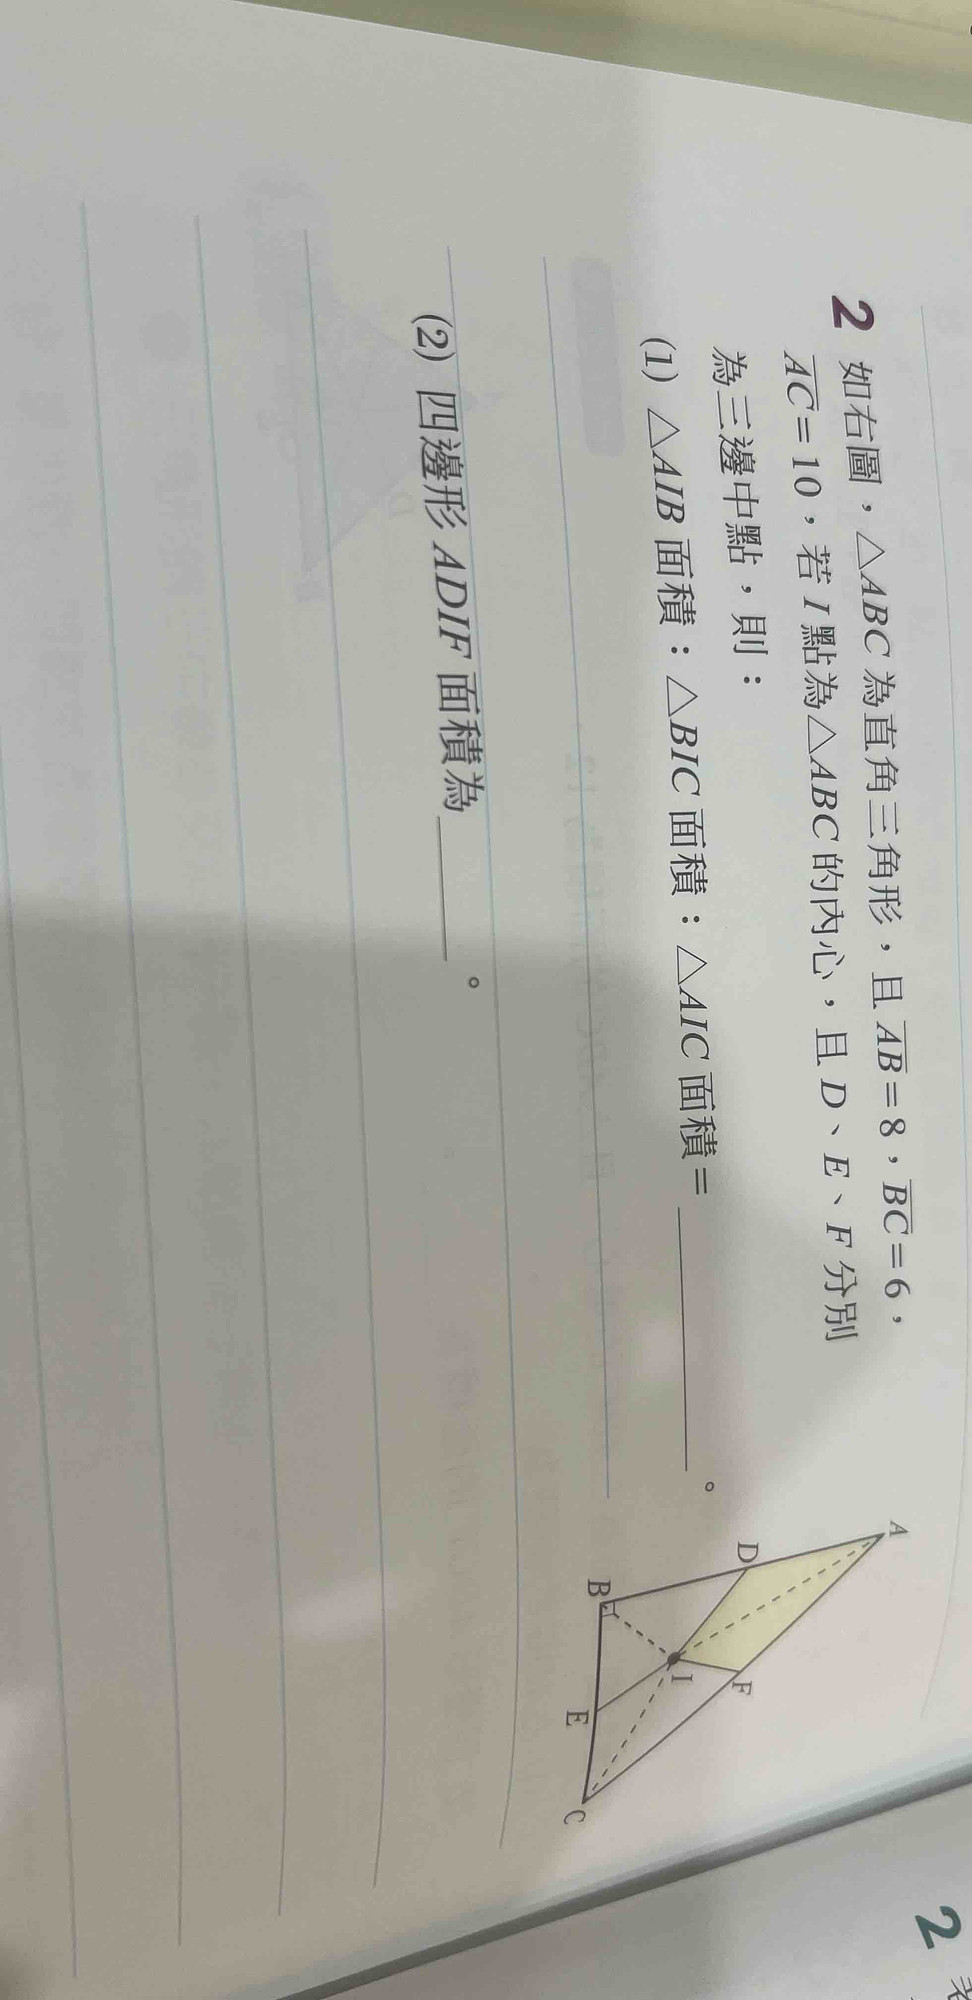 2 如右圖，△ABC 為直角三角形，且 AB=8，BC=6，
AC=10，若 I 點為△ABC 的內心，且 D、E、F 分別
為三邊中點，則：
(1) △AIB 面積：△BIC 面積：△AIC 面積=＿＿＿＿。
(2) 四邊形 ADIF 面積為＿＿＿。
A
D
F
B
I
E
C
2